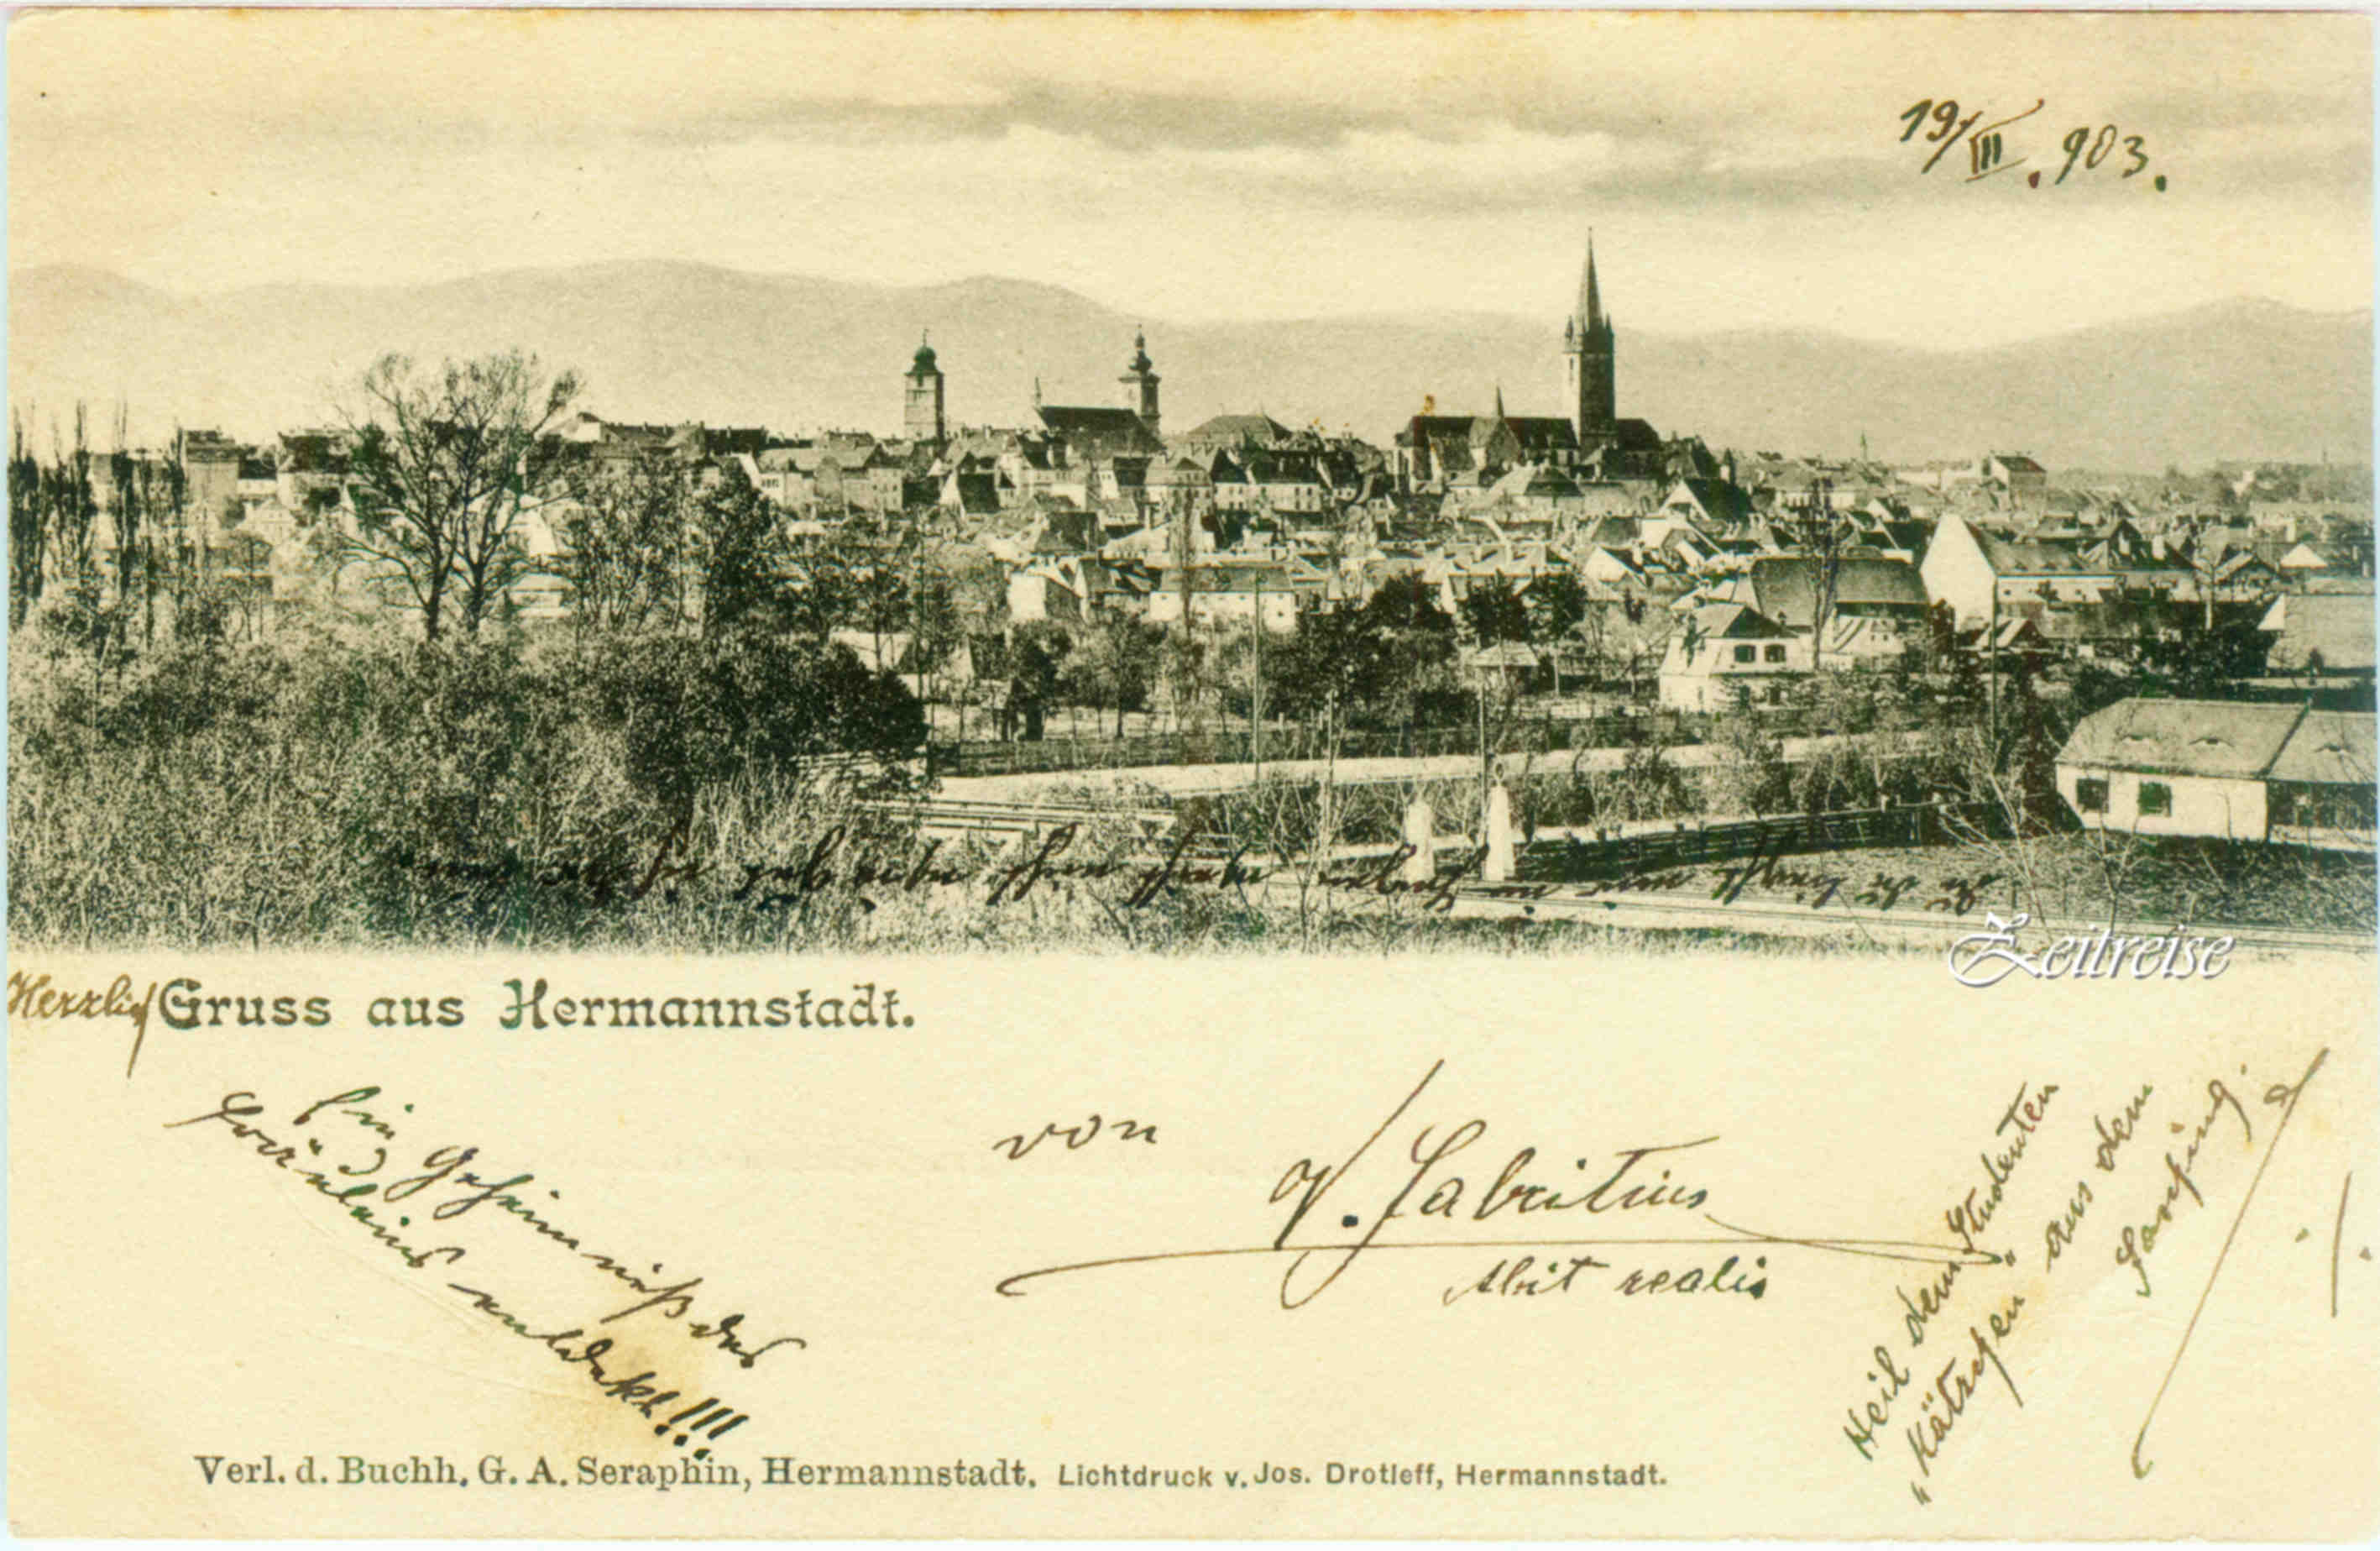 19/III. 903.
Zeitreise
Herzlich Gruss aus Hermannstadt.
Ein Geheimniß des
Fräuleins entdeckt!!!
von
V. Fabritius
Abit realis
Heil dem Studenten
"Kätzchen" aus dem
Fasching.
Verl. d. Buchh. G. A. Seraphin, Hermannstadt. Lichtdruck v. Jos. Drotleff, Hermannstadt.